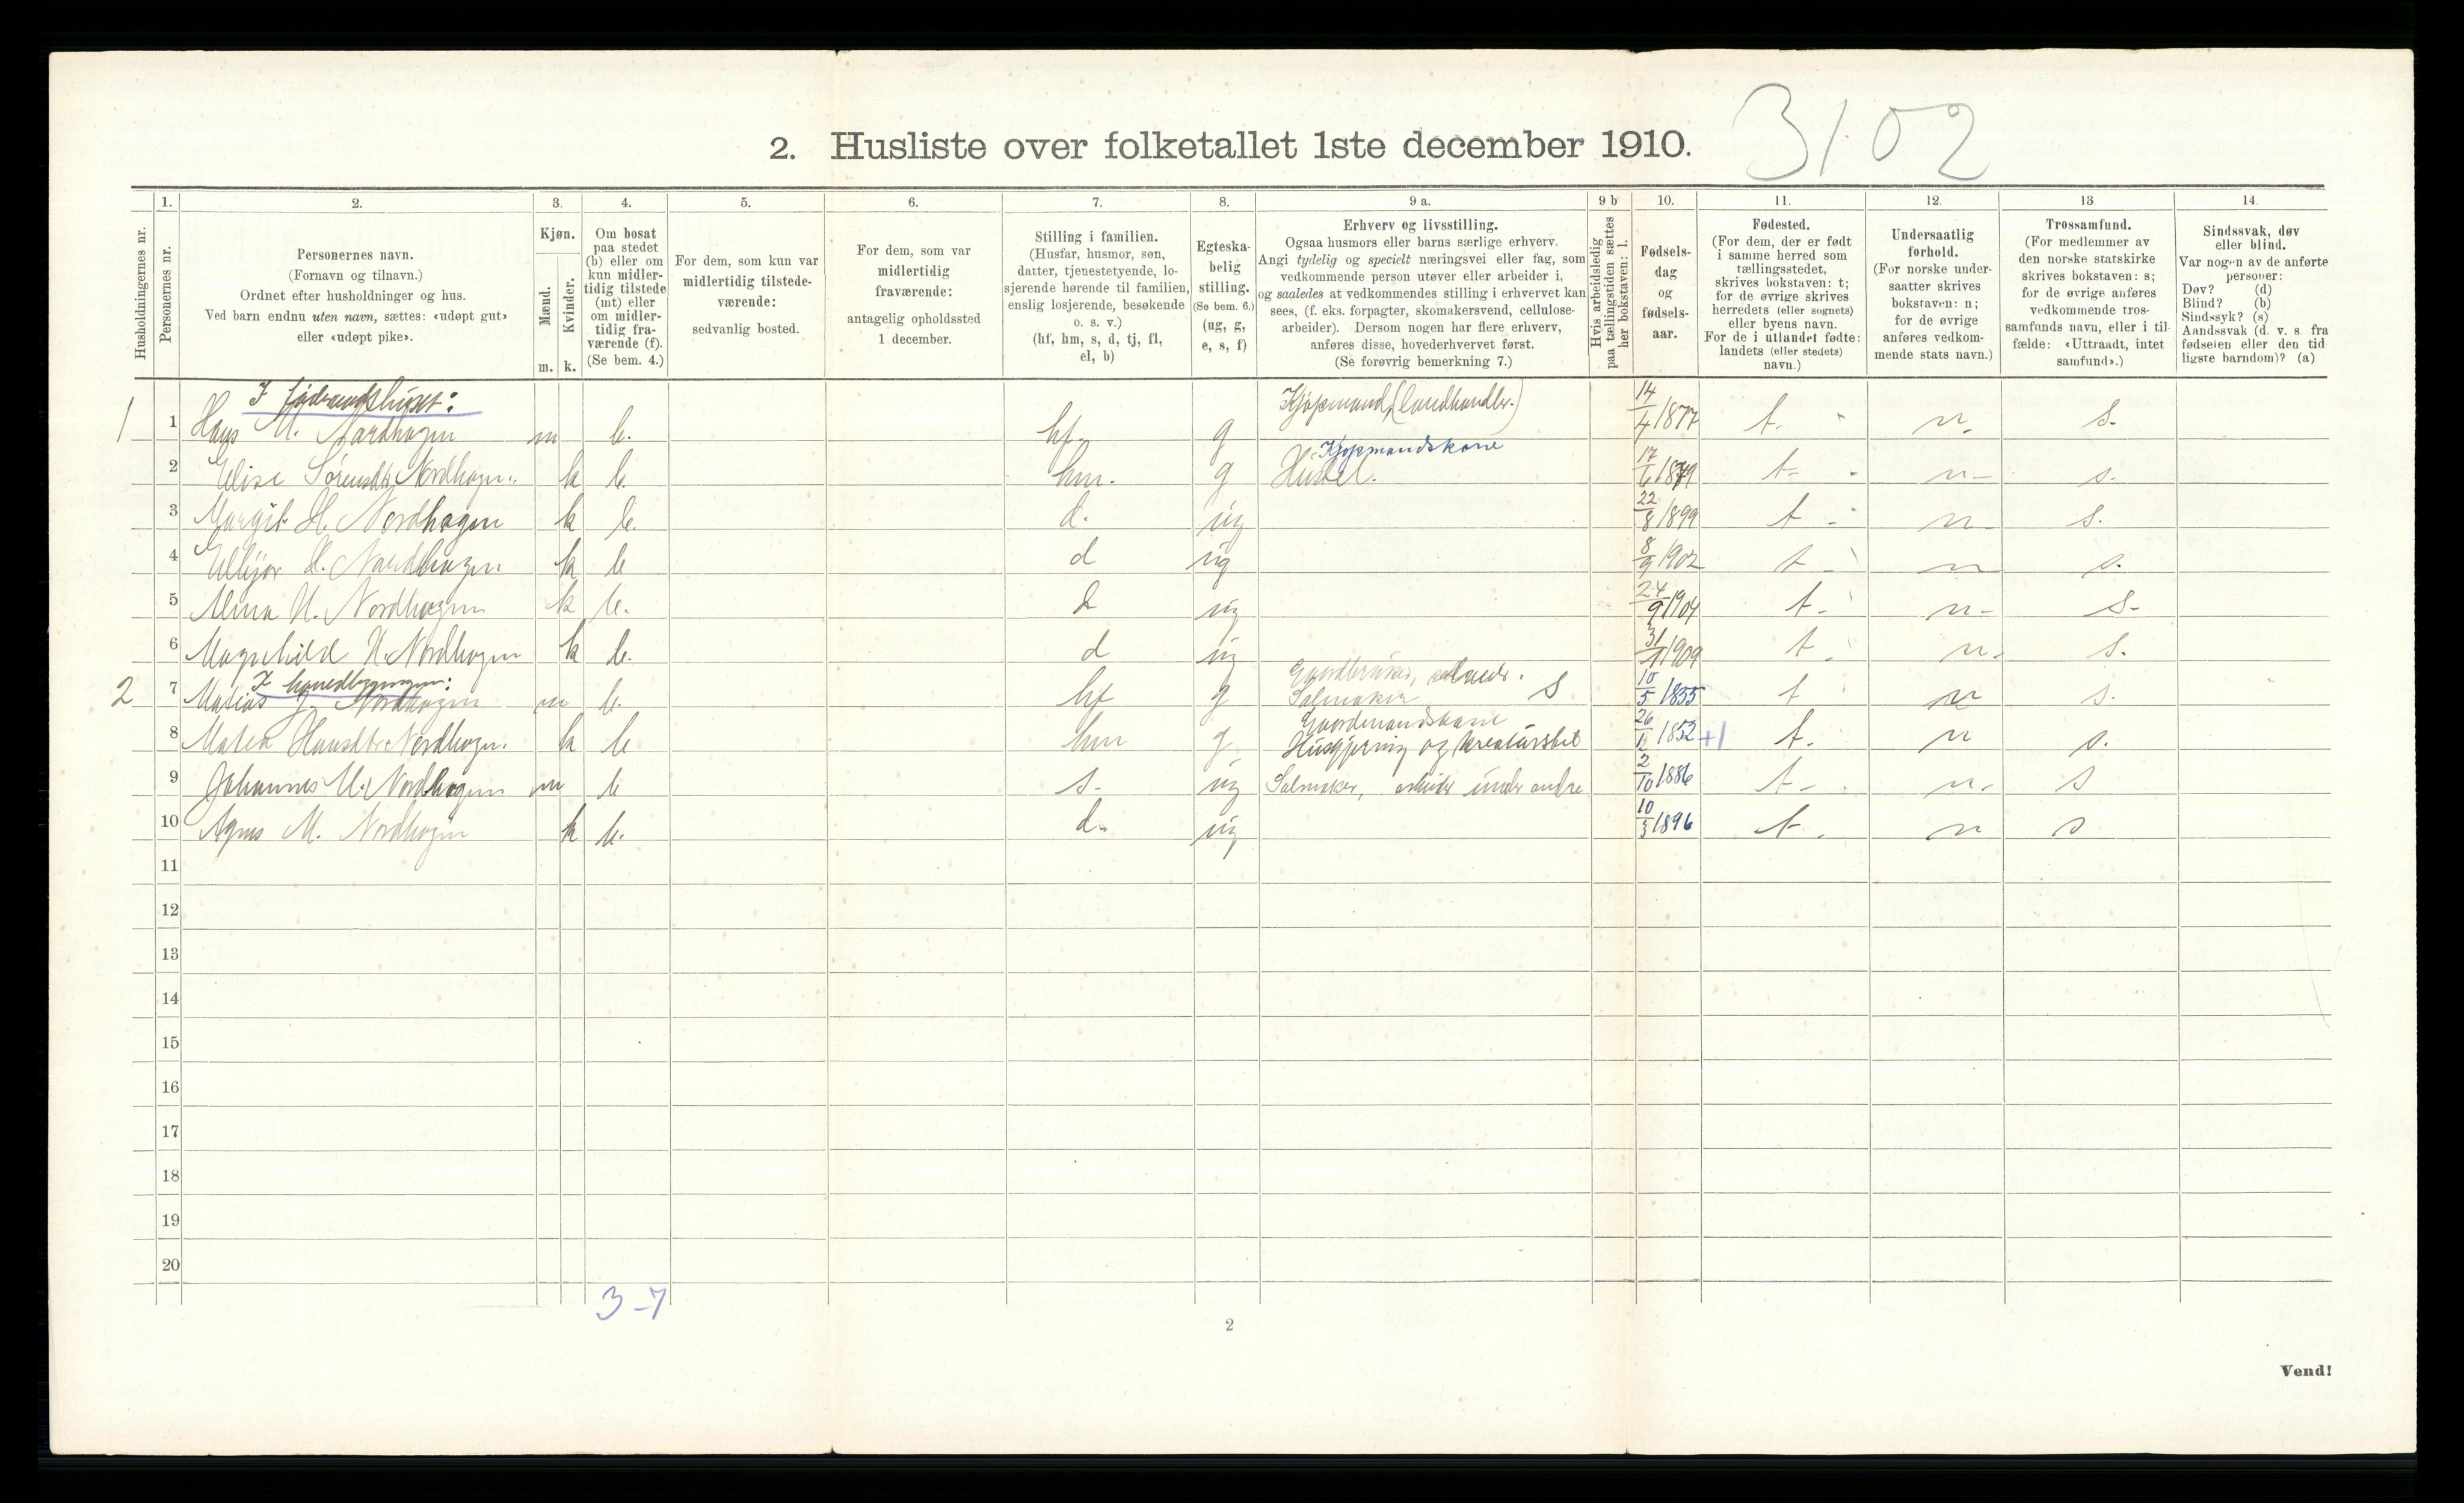 3102
2. Husliste over folketallet 1ste december 1910.
Husholdningernes nr.
1. Personernes nr.
2. Personernes navn.
(Fornavn og tilnavn.)
Ordnet efter husholdninger og hus.
Ved barn endnu uten navn, sættes: «udøpt gut»
eller «udøpt pike».
3. Kjøn.
Mænd. m.
Kvinder. k.
4. Om bosat
paa stedet
(b) eller om
kun midler-
tidig tilstede
(mt) eller
om midler-
tidig fra-
værende (f).
(Se bem. 4.)
5. For dem, som kun var
midlertidig tilstede-
værende:
sedvanlig bosted.
6. For dem, som var
midlertidig
fraværende:
antagelig opholdssted
1 december.
7. Stilling i familien.
(Husfar, husmor, søn,
datter, tjenestetyende, lo-
sjerende hørende til familien,
enslig losjerende, besøkende
o. s. v.)
(hf, hm, s, d, tj, fl,
el, b)
8. Egteska-
belig
stilling.
(Se bem. 6.)
(ug, g,
e, s, f)
9 a. Erhverv og livsstilling.
Ogsaa husmors eller barns særlige erhverv.
Angi tydelig og specielt næringsvei eller fag, som
vedkommende person utøver eller arbeider i,
og saaledes at vedkommendes stilling i erhvervet kan
sees, (f. eks. forpagter, skomakersvend, cellulose-
arbeider). Dersom nogen har flere erhverv,
anføres disse, hovederhvervet først.
(Se forøvrig bemerkning 7.)
9 b Hvis arbeidsledig
paa tællingstiden sættes
her bokstaven: l.
10. Fødsels-
dag
og
fødsels-
aar.
11. Fødested.
(For dem, der er født
i samme herred som
tællingsstedet,
skrives bokstaven: t;
for de øvrige skrives
herredets (eller sognets)
eller byens navn.
For de i utlandet fødte:
landets (eller stedets)
navn.)
12. Undersaatlig
forhold.
(For norske under-
saatter skrives
bokstaven: n;
for de øvrige
anføres vedkom-
mende stats navn.)
13 Trossamfund.
(For medlemmer av
den norske statskirke
skrives bokstaven: s;
for de øvrige anføres
vedkommende tros-
samfunds navn, eller i til-
fælde: «Uttraadt, intet
samfund».)
14. Sindssvak, døv
eller blind.
Var nogen av de anførte
personer:
Døv? (d)
Blind? (b)
Sindssyk? (s)
Aandssvak (d. v. s. fra
fødselen eller den tid
ligste barndom)? (a)
1 1 Hans M. Nordhagen m b. hf. g Kjøpmand, (landhandler.) 14/4 1877 t. n. s.
2 Elise Sørensdtr Nordhagen. k b. hm. g Husstel. Kjøpmandskone 17/6 1879 t- n- s.
3 Margit H. Nordhagen k b. d. ug 22/8 1899 t- n- s.
4 H. Nordhagen k b d ug 8/9 1902 t- n- s.
5 Alma H. Nordhagen k b. d ug 24/9 1904 t- n- s-
6 Magnhild H. Nordhagen k b. d ug 31/1 1909 t. n. s.
I hovedbygningen:
2 7 Matias J. Nordhagen m b. hf g Gaardbruker, selveier.
Salmaker S 10/5 1855 t n s.
8 Matea Hansdtr Nordhagen. k b hm g Gaardmandskone
Husgjerning og kreaturstel 26/12 1852 +1 t. n s.
9 Johannes M. Nordhagen m b s. ug Salmaker, arbeider under andre 2/10 1886 t- n- s
10 Agnes M. Nordhagen k b. d. ug 10/3 1896 t. n s
11
12
13
14
15
16
17
18
19
20
3-7
2
Vend!